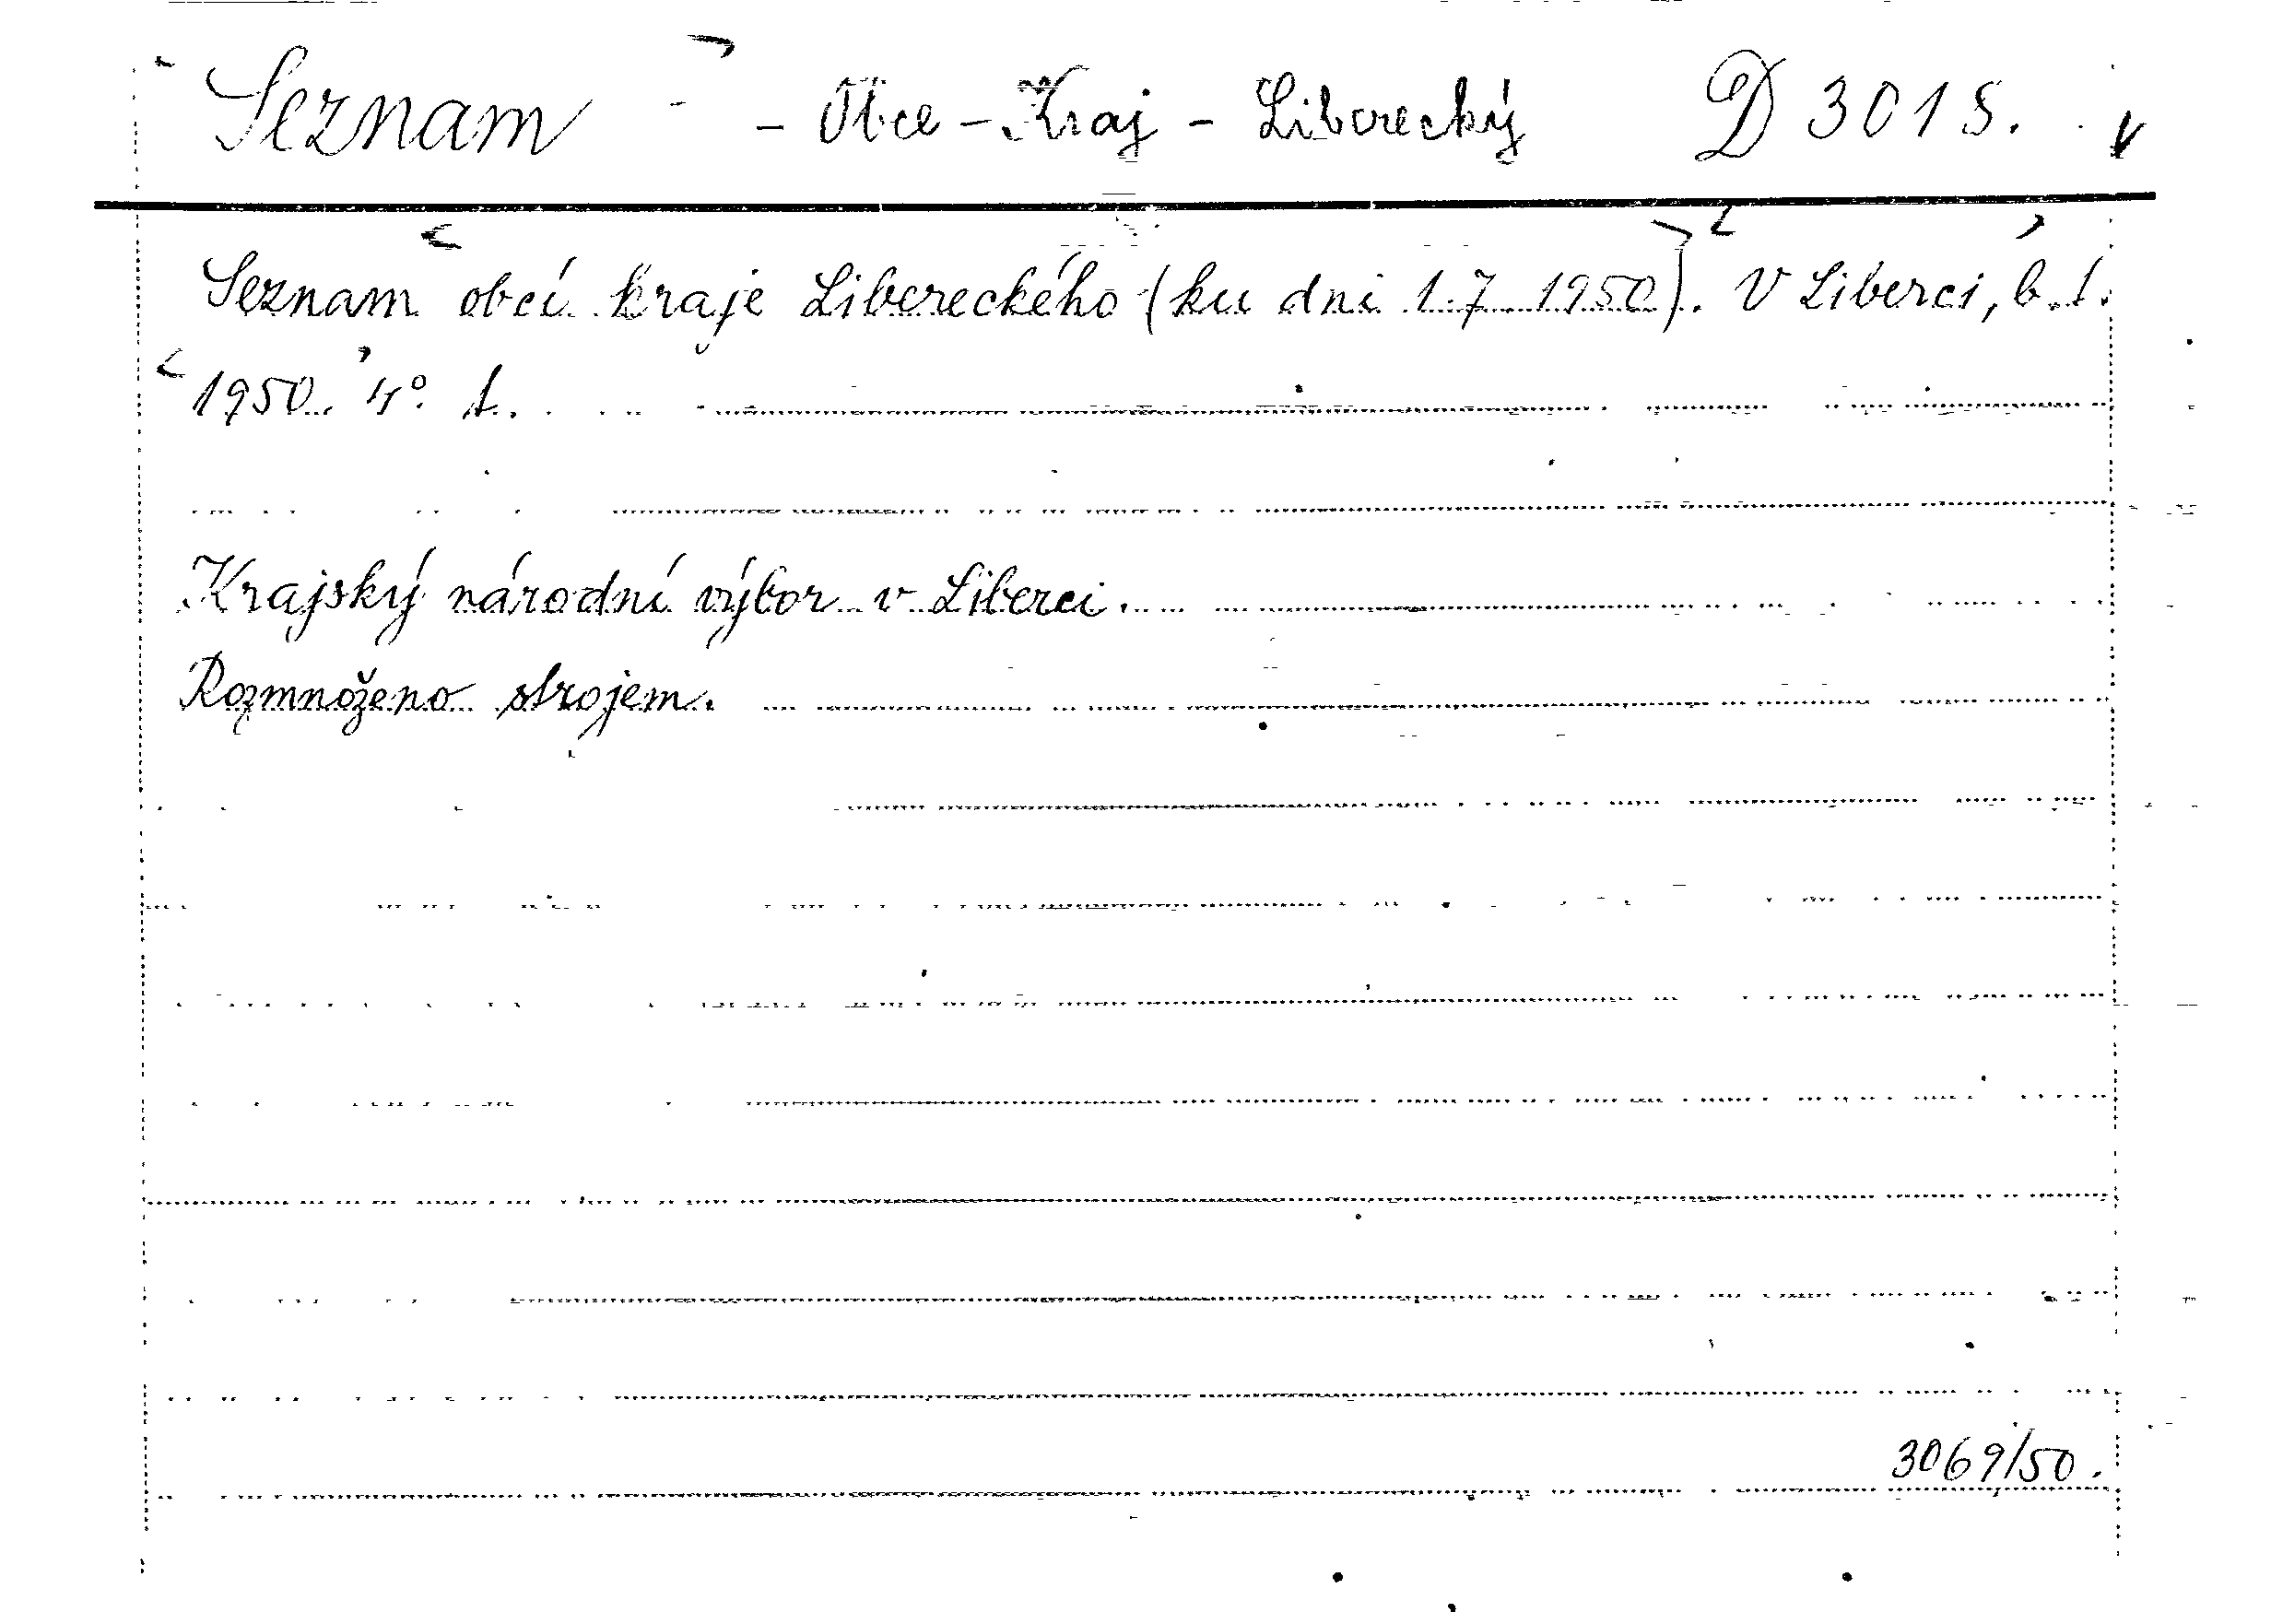 Seznam - Obce - Kraj - Liberecký D 3015.
Seznam obcí kraje Libereckého (ku dni 1.7.1950). V Liberci, b. t.
1950. 4°. 1.
Krajský národní výbor v Liberci.
Rozmnoženo strojem.
3069/50.